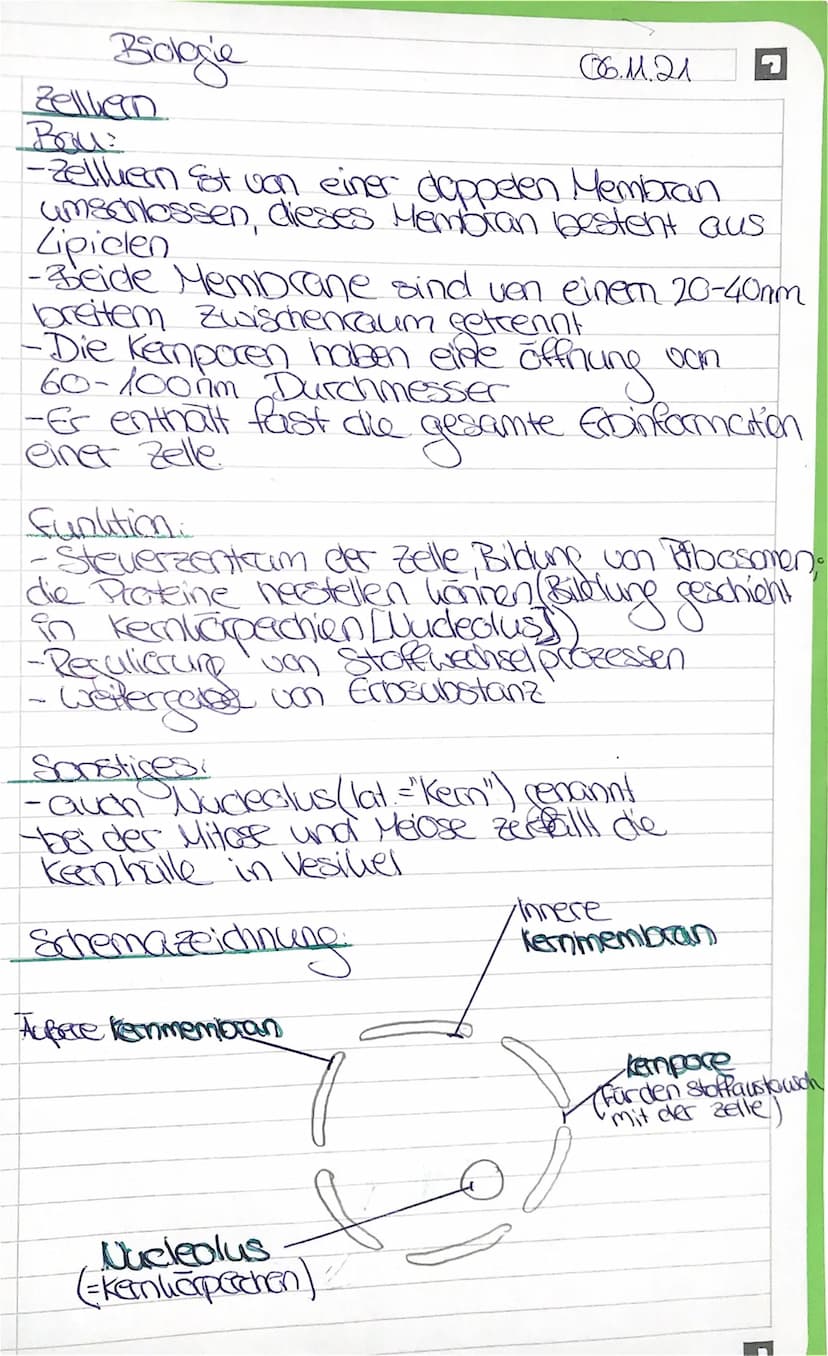 Biologie
06.11.21
Zellkern
Bau:
-Zellkern ist von einer doppelten Membran
umschlossen, dieses Membran besteht aus
Lipiden
-Beide Membrane sind von einem 20-40nm
breitem Zwischenraum getrennt
-Die Kernporen haben eine öffnung von
60-100nm Durchmesser
-Er enthält fast die gesamte Erbinformation
einer Zelle.
Funktion:
-Steuerzentrum der Zelle, Bildung von Ribosomen,
die Proteine herstellen können (Bildung geschieht
in Kernkörperchen [Nucleolus])
-Regulierung von Stoffwechselprozessen
-Weitergabe von Erbsubstanz
Sonstiges:
-auch Nucleolus (lat.="Kern") genannt
-bei der Mitose und Meiose zerfällt die
Kernhülle in Vesikel
Schemazeichnung:
Innere
Kernmembran
Äußere Kernmembran
Kernpore
(Für den Stoffaustausch
mit der Zelle)
Nucleolus
(=Kernkörperchen)